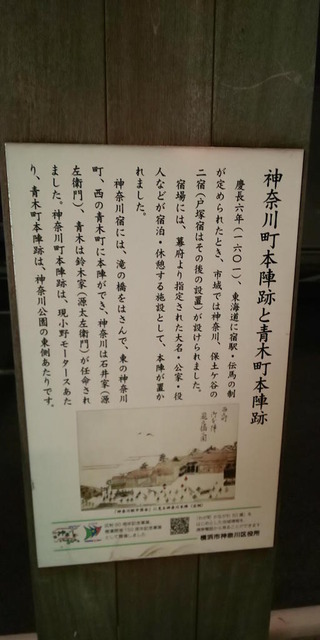 神奈川町本陣跡と青木町本陣跡
慶長六年(一六〇一)、東海道に宿駅・伝馬の制
が定められたとき、市域では神奈川、保土ケ谷の
二宿(戸塚宿はその後の設置)が設けられました。
宿場には、幕府より指定された大名・公家・役
人などが宿泊・休憩する施設として、本陣が置か
れました。
神奈川宿には、滝の橋をはさんで、東の神奈川
町、西の青木町に本陣ができ、神奈川は石井家(源
左衛門)、青木は鈴木家(源太左衛門)が任命され
ました。神奈川町本陣跡は、現小野モータースあた
り、青木町本陣跡は、神奈川公園の東側あたりです。
横浜市神奈川区役所